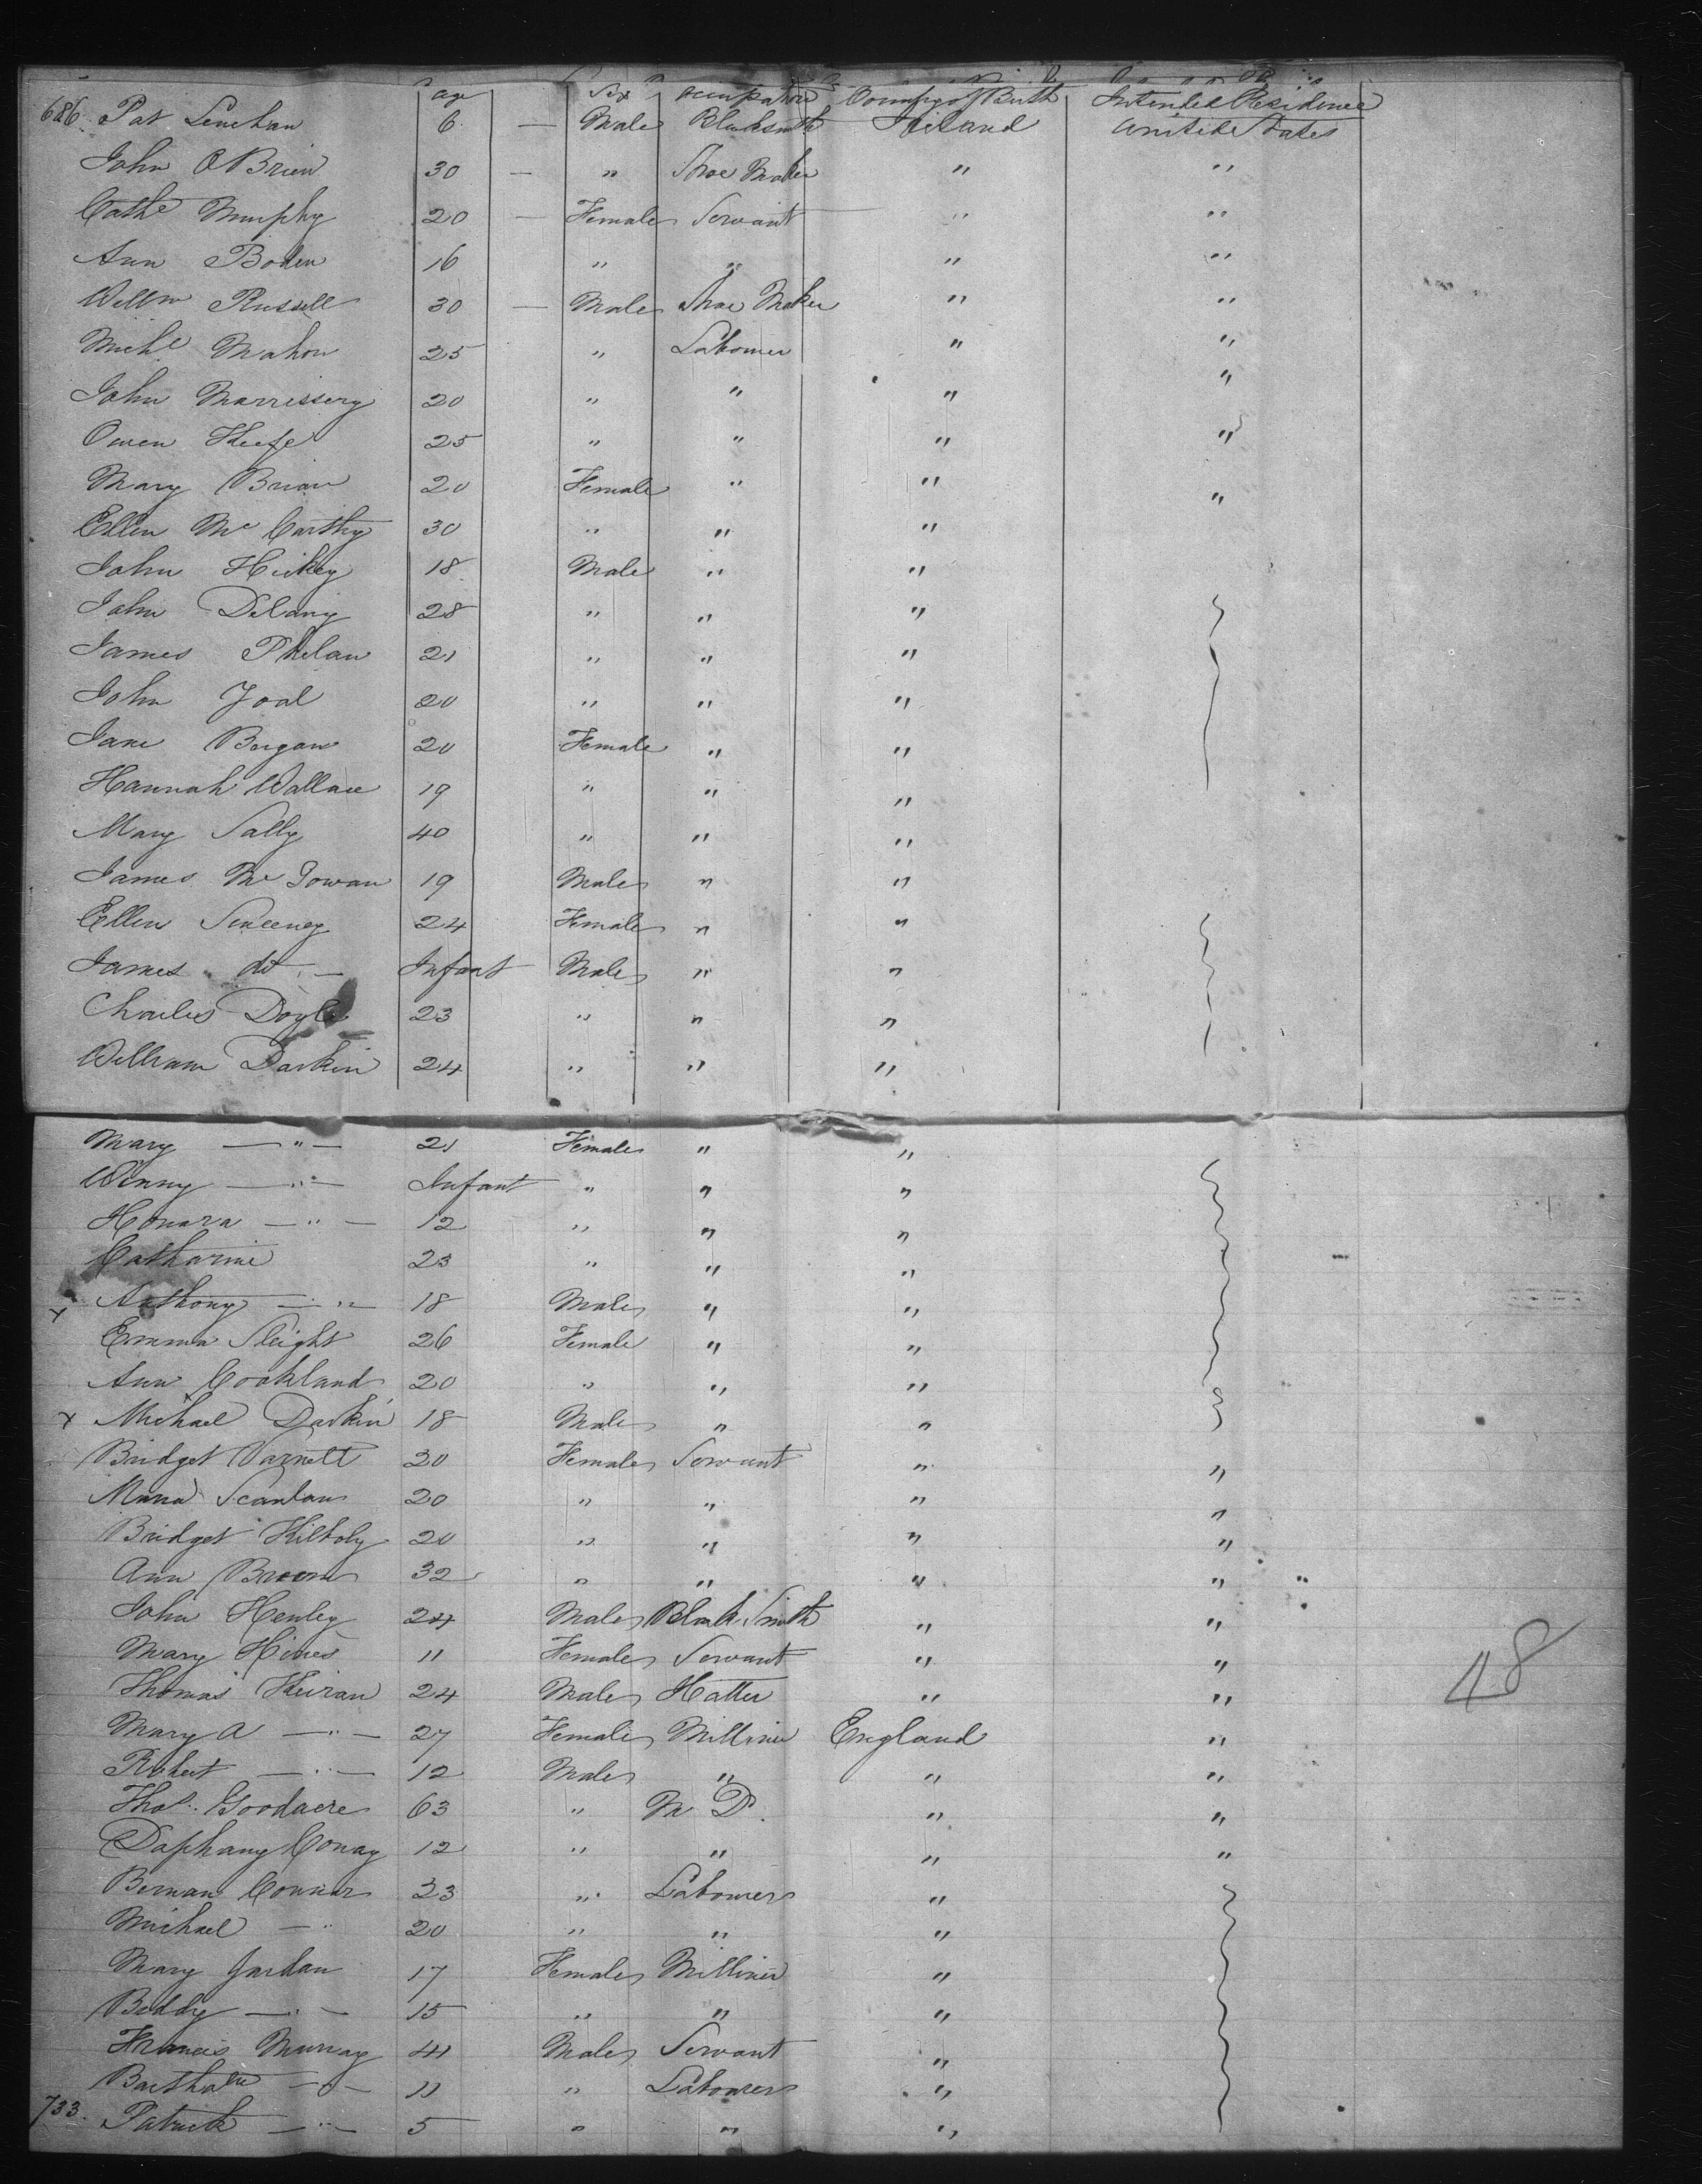 age Sex occupation Country of Birth Intended Residence
686 Pat Lenehan 6 — Male Blacksmith Ireland United States
John O Brien 30 — " Shoe Maker " "
Cathe Murphy 20 — Female Servant " "
Ann Boden 16 " " " "
Willm Russell 30 — Male Shoe Maker " "
Michl Mahon 25 " Labourer " "
John Marrissery 20 " " " "
Owen Keefe 25 " " " "
Mary Brian 20 Female " " "
Ellen Mc Carthy 30 " " "
John Hickey 18 Male " "
John Delany 28 " " "
James Phelan 21 " " "
John Joal 20 " " "
Jane Bergan 20 Female " "
Hannah Wallace 19 " " "
Mary Sally 40 " " "
James Mc Gowan 19 Male " "
Ellen Sweeney 24 Female " "
James do — Infant Male " "
Charles Doyle 23 " " "
William Darkin 24 " " "
Mary — " — 21 Female " "
Winny — " — Infant " " "
Honara — " — 12 " " "
Catharine 23 " " "
x Anthony — " — 18 Male " "
Emma Sleight 26 Female " "
Ann Cookland 20 " " "
x Michael Darkin 18 Male " "
Bridget Varnell 30 Female Servant " "
Maria Scanlan 20 " " " "
Bridget Kiltoly 20 " " " "
Ann Broom 32 " " " " "
John Henley 24 Male Black Smith " "
Mary Hines 11 Female Servant " "
Thomas Keiran 24 Male Hatter " "
48
Mary A — " — 27 Female Milliner England "
Robert — " — 12 Male " " "
Thos. Goodacre 63 " M D. " "
Daphany Conay 12 " " " "
Bernan Connor 23 " Labourer "
Michael — " 20 " " "
Mary Jordan 17 Female Milliner "
Biddy — " — 15 " " "
Francis Murray 41 Male Servant "
Bartholw — " — 11 " Labourer "
733. Patrick — " — 5 " " "